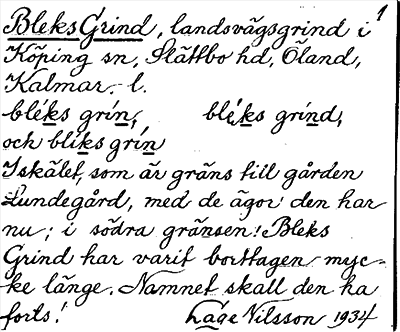 Bleks Grind, landsvägsgrind i 1
Köping sn, Slättbo hd, Öland,
Kalmar l.
bléks grín, bléks grínd,
och blíks grín
I skälet, som är gräns till gården
Lundegård, med de ägor den har
nu; i södra gränsen! Bleks
Grind har varit borttagen myc-
ke länge. Namnet skall den ha
forts! Lage Nilsson 1934